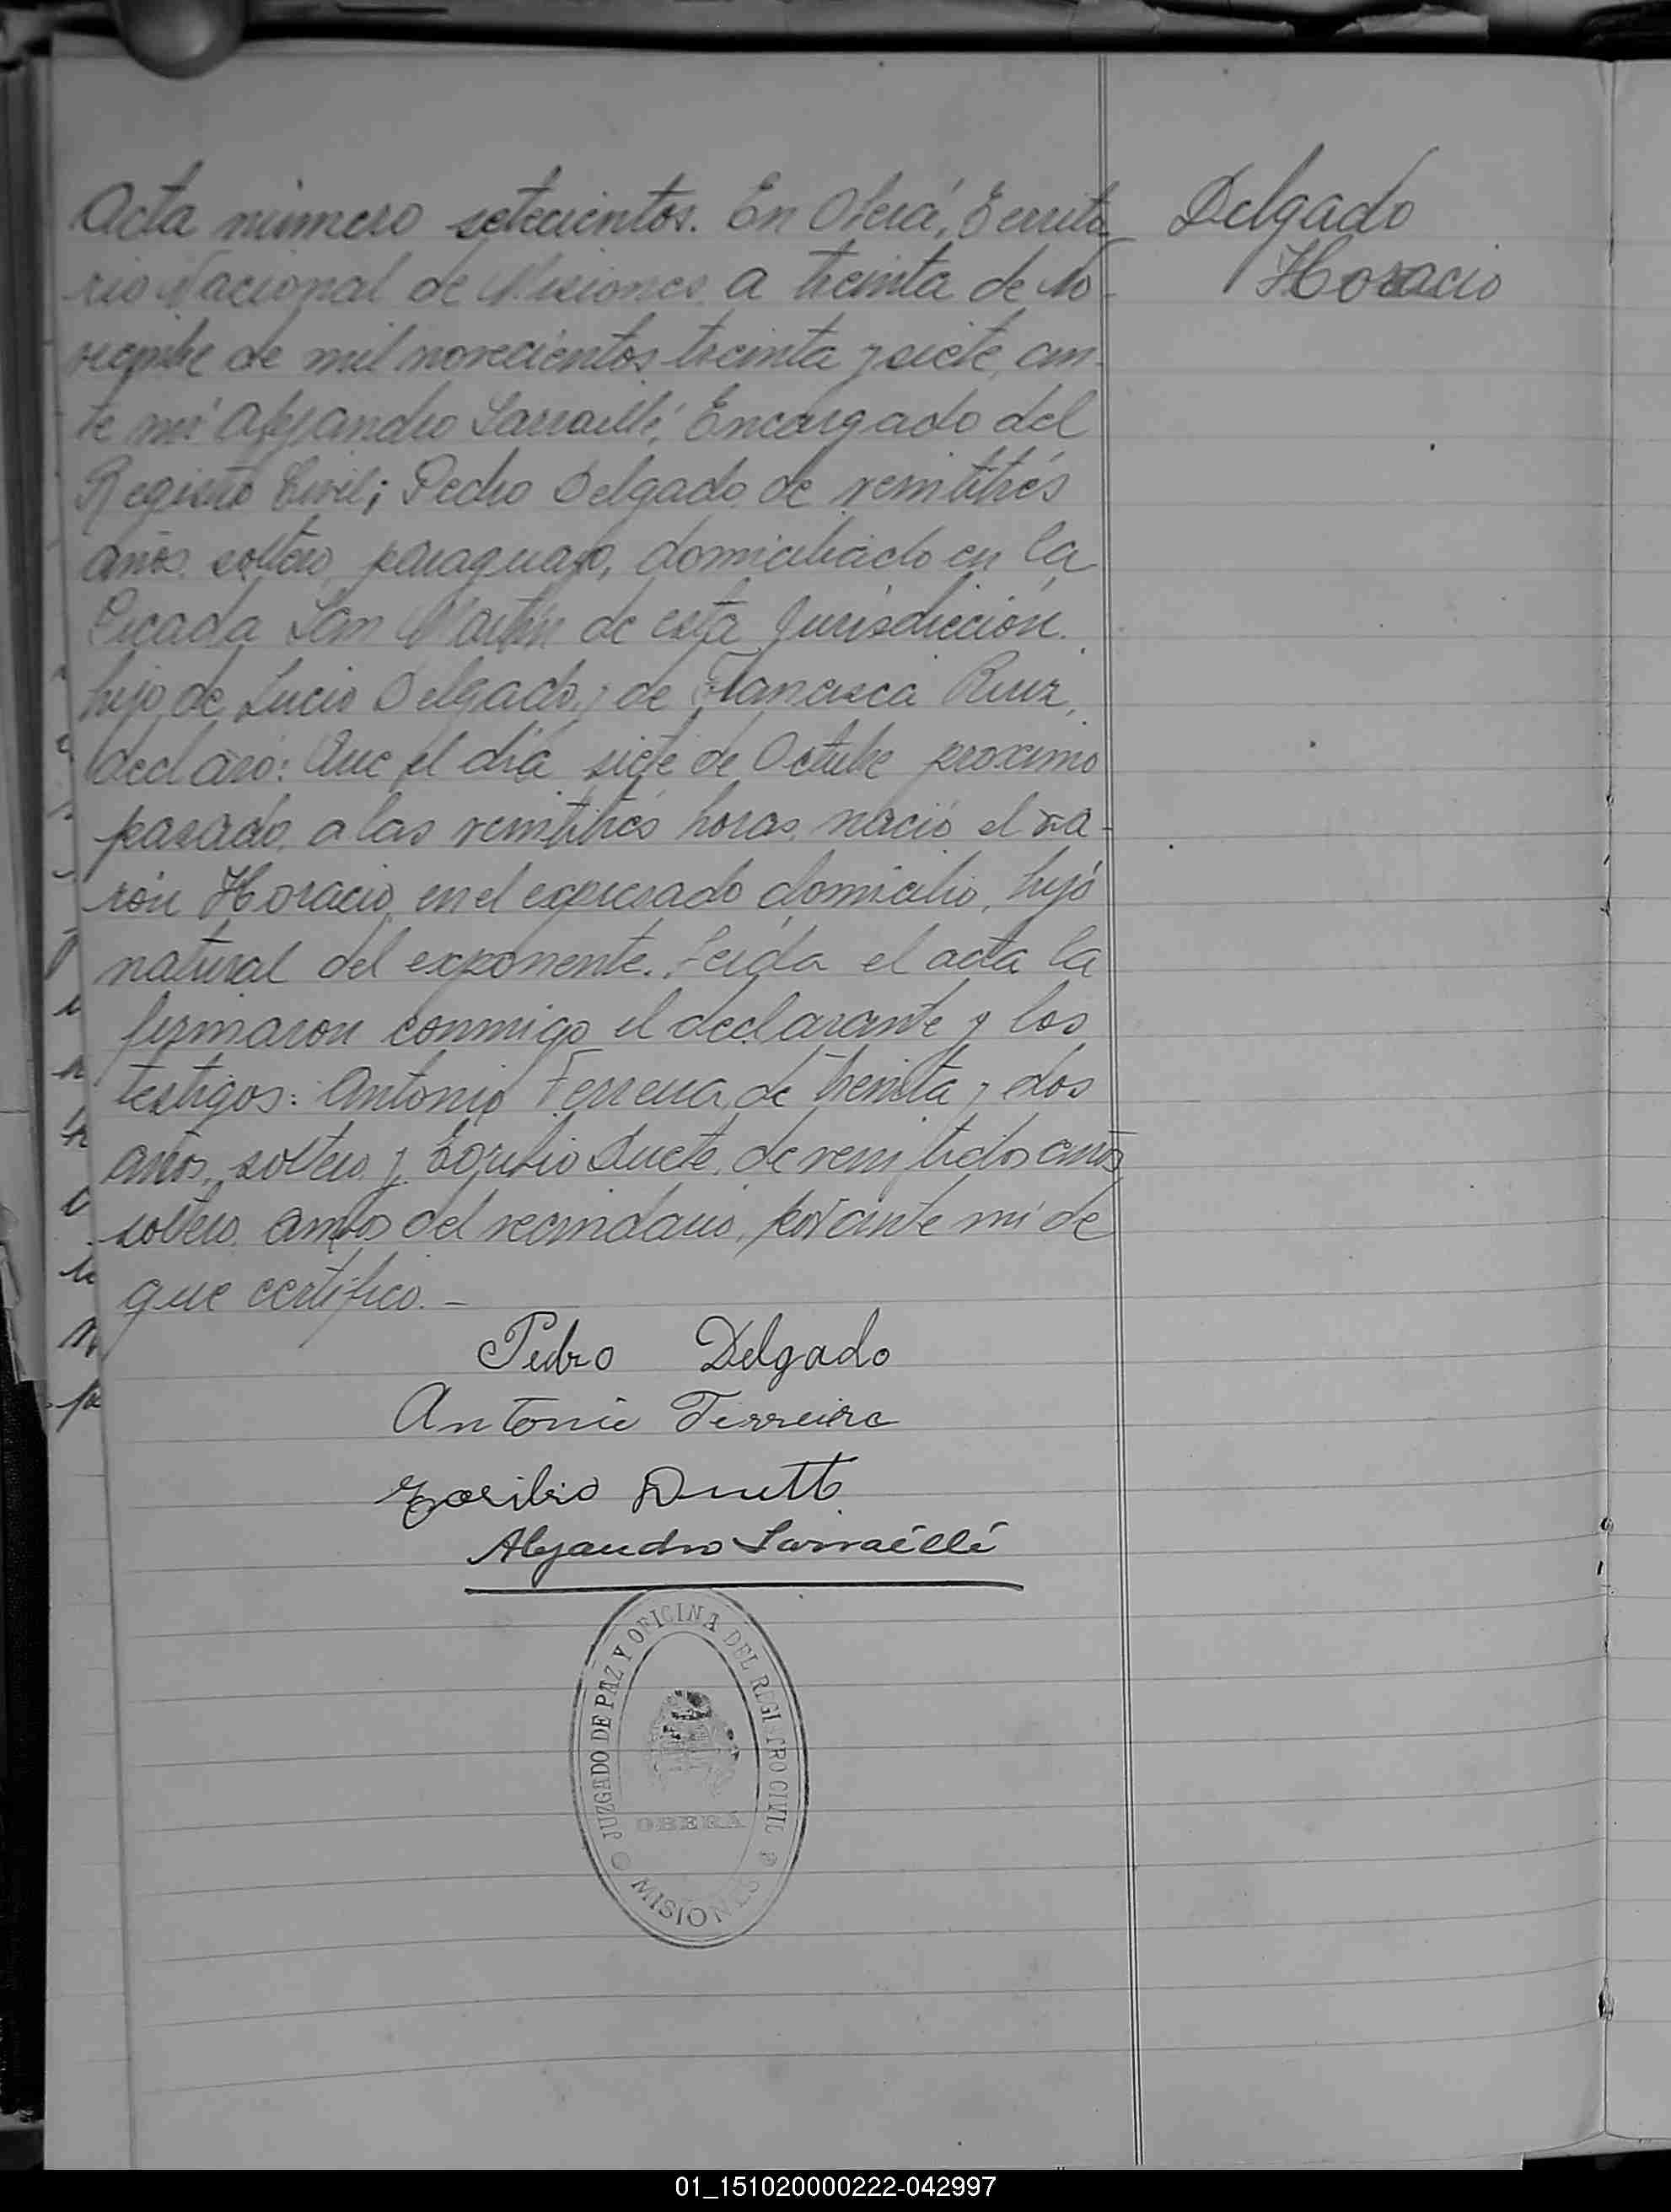 Acta número setecientos. En Oberá, Territo
rio Nacional de Misiones a treinta de No-
viembre de mil novecientos treinta y siete, an-
te mí Alejandro Sarraillé, Encargado del
Registro Civil; Pedro Delgado, de veintitrés
años, soltero, paraguayo, domiciliado en la
Picada San Martín de esta Jurisdicción.
hijo de Lucio Delgado y de Francisca Ruiz,
declaró: Que el día siete de Octubre proximo
pasado, a las veintitrés horas, nació el va-
rón Horacio, en el expresado domicilio, hijo
natural del exponente. Leída el acta la
firmaron conmigo el declarante y los
testigos: Antonio Ferreira, de treinta y dos
años, soltero y Toribio Duete, de veintidos años
soltero, ambos del vecindario, por ante mí de
que certifico. -
Delgado
Horacio
Pedro Delgado
Antonio Ferreira
Toribio
Alejandro Sarraillé
JUZGADO DE PAZ Y OFICINA DEL REGISTRO CIVIL
OBERÁ
MISIONES
01_151020000222-042997